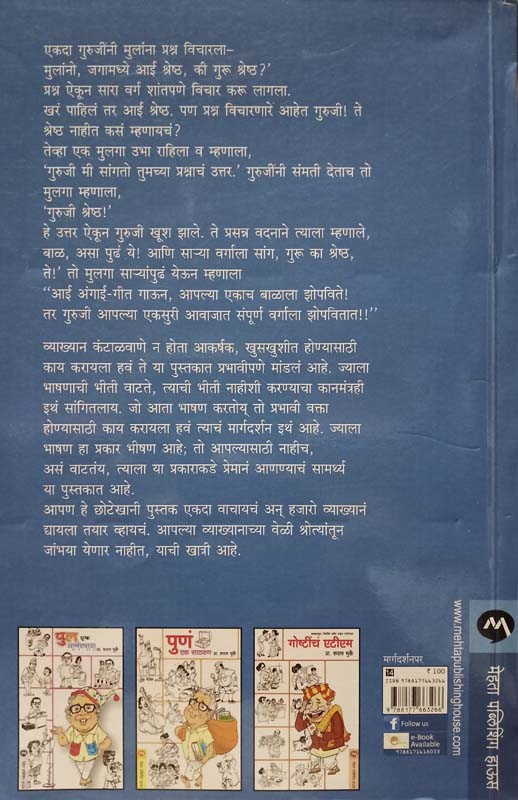 एकदा गुरुजींनी मुलांना प्रश्न विचारला–
मुलांनो, जगामध्ये आई श्रेष्ठ, की गुरू श्रेष्ठ?'
प्रश्न ऐकून सारा वर्ग शांतपणे विचार करू लागला.
खरं पाहिलं तर आई श्रेष्ठ. पण प्रश्न विचारणारे आहेत गुरुजी! ते
श्रेष्ठ नाहीत कसं म्हणायचं?
तेव्हा एक मुलगा उभा राहिला व म्हणाला,
'गुरुजी मी सांगतो तुमच्या प्रश्नाचं उत्तर.' गुरुजींनी संमती देताच तो
मुलगा म्हणाला,
'गुरुजी श्रेष्ठ!'
हे उत्तर ऐकून गुरुजी खूश झाले. ते प्रसन्न वदनाने त्याला म्हणाले,
बाळ, असा पुढं ये! आणि साऱ्या वर्गाला सांग, गुरू का श्रेष्ठ,
ते!' तो मुलगा साऱ्यांपुढं येऊन म्हणाला
"आई अंगाई-गीत गाऊन, आपल्या एकाच बाळाला झोपविते!
तर गुरुजी आपल्या एकसुरी आवाजात संपूर्ण वर्गाला झोपवितात!!"
व्याख्यान कंटाळवाणे न होता आकर्षक, खुसखुशीत होण्यासाठी
काय करायला हवं ते या पुस्तकात प्रभावीपणे मांडलं आहे. ज्याला
भाषणाची भीती वाटते, त्याची भीती नाहीशी करण्याचा कानमंत्रही
इथं सांगितलाय. जो आता भाषण करतोय् तो प्रभावी वक्ता
होण्यासाठी काय करायला हवं त्याचं मार्गदर्शन इथं आहे. ज्याला
भाषण हा प्रकार भीषण आहे; तो आपल्यासाठी नाहीच,
असं वाटतंय, त्याला या प्रकाराकडे प्रेमानं आणण्याचं सामर्थ्य
या पुस्तकात आहे.
आपण हे छोटेखानी पुस्तक एकदा वाचायचं अन् हजारो व्याख्यानं
द्यायला तयार व्हायचं. आपल्या व्याख्यानाच्या वेळी श्रोत्यांतून
जांभया येणार नाहीत, याची खात्री आहे.
पुल एक
आनंदयात्रा
प्रा. श्याम भुर्के
पुणं
एक साठवण
प्रा. श्याम भुर्के
गोष्टींचं एटीएम
प्रा. श्याम भुर्के
मार्गदर्शनपर
14
₹ 100
ISBN 9788177663266
9 788177 663266
Follow us
e-Book
Available
9788171618033
www.mehtapublishinghouse.com
मेहता पब्लिशिंग हाऊस